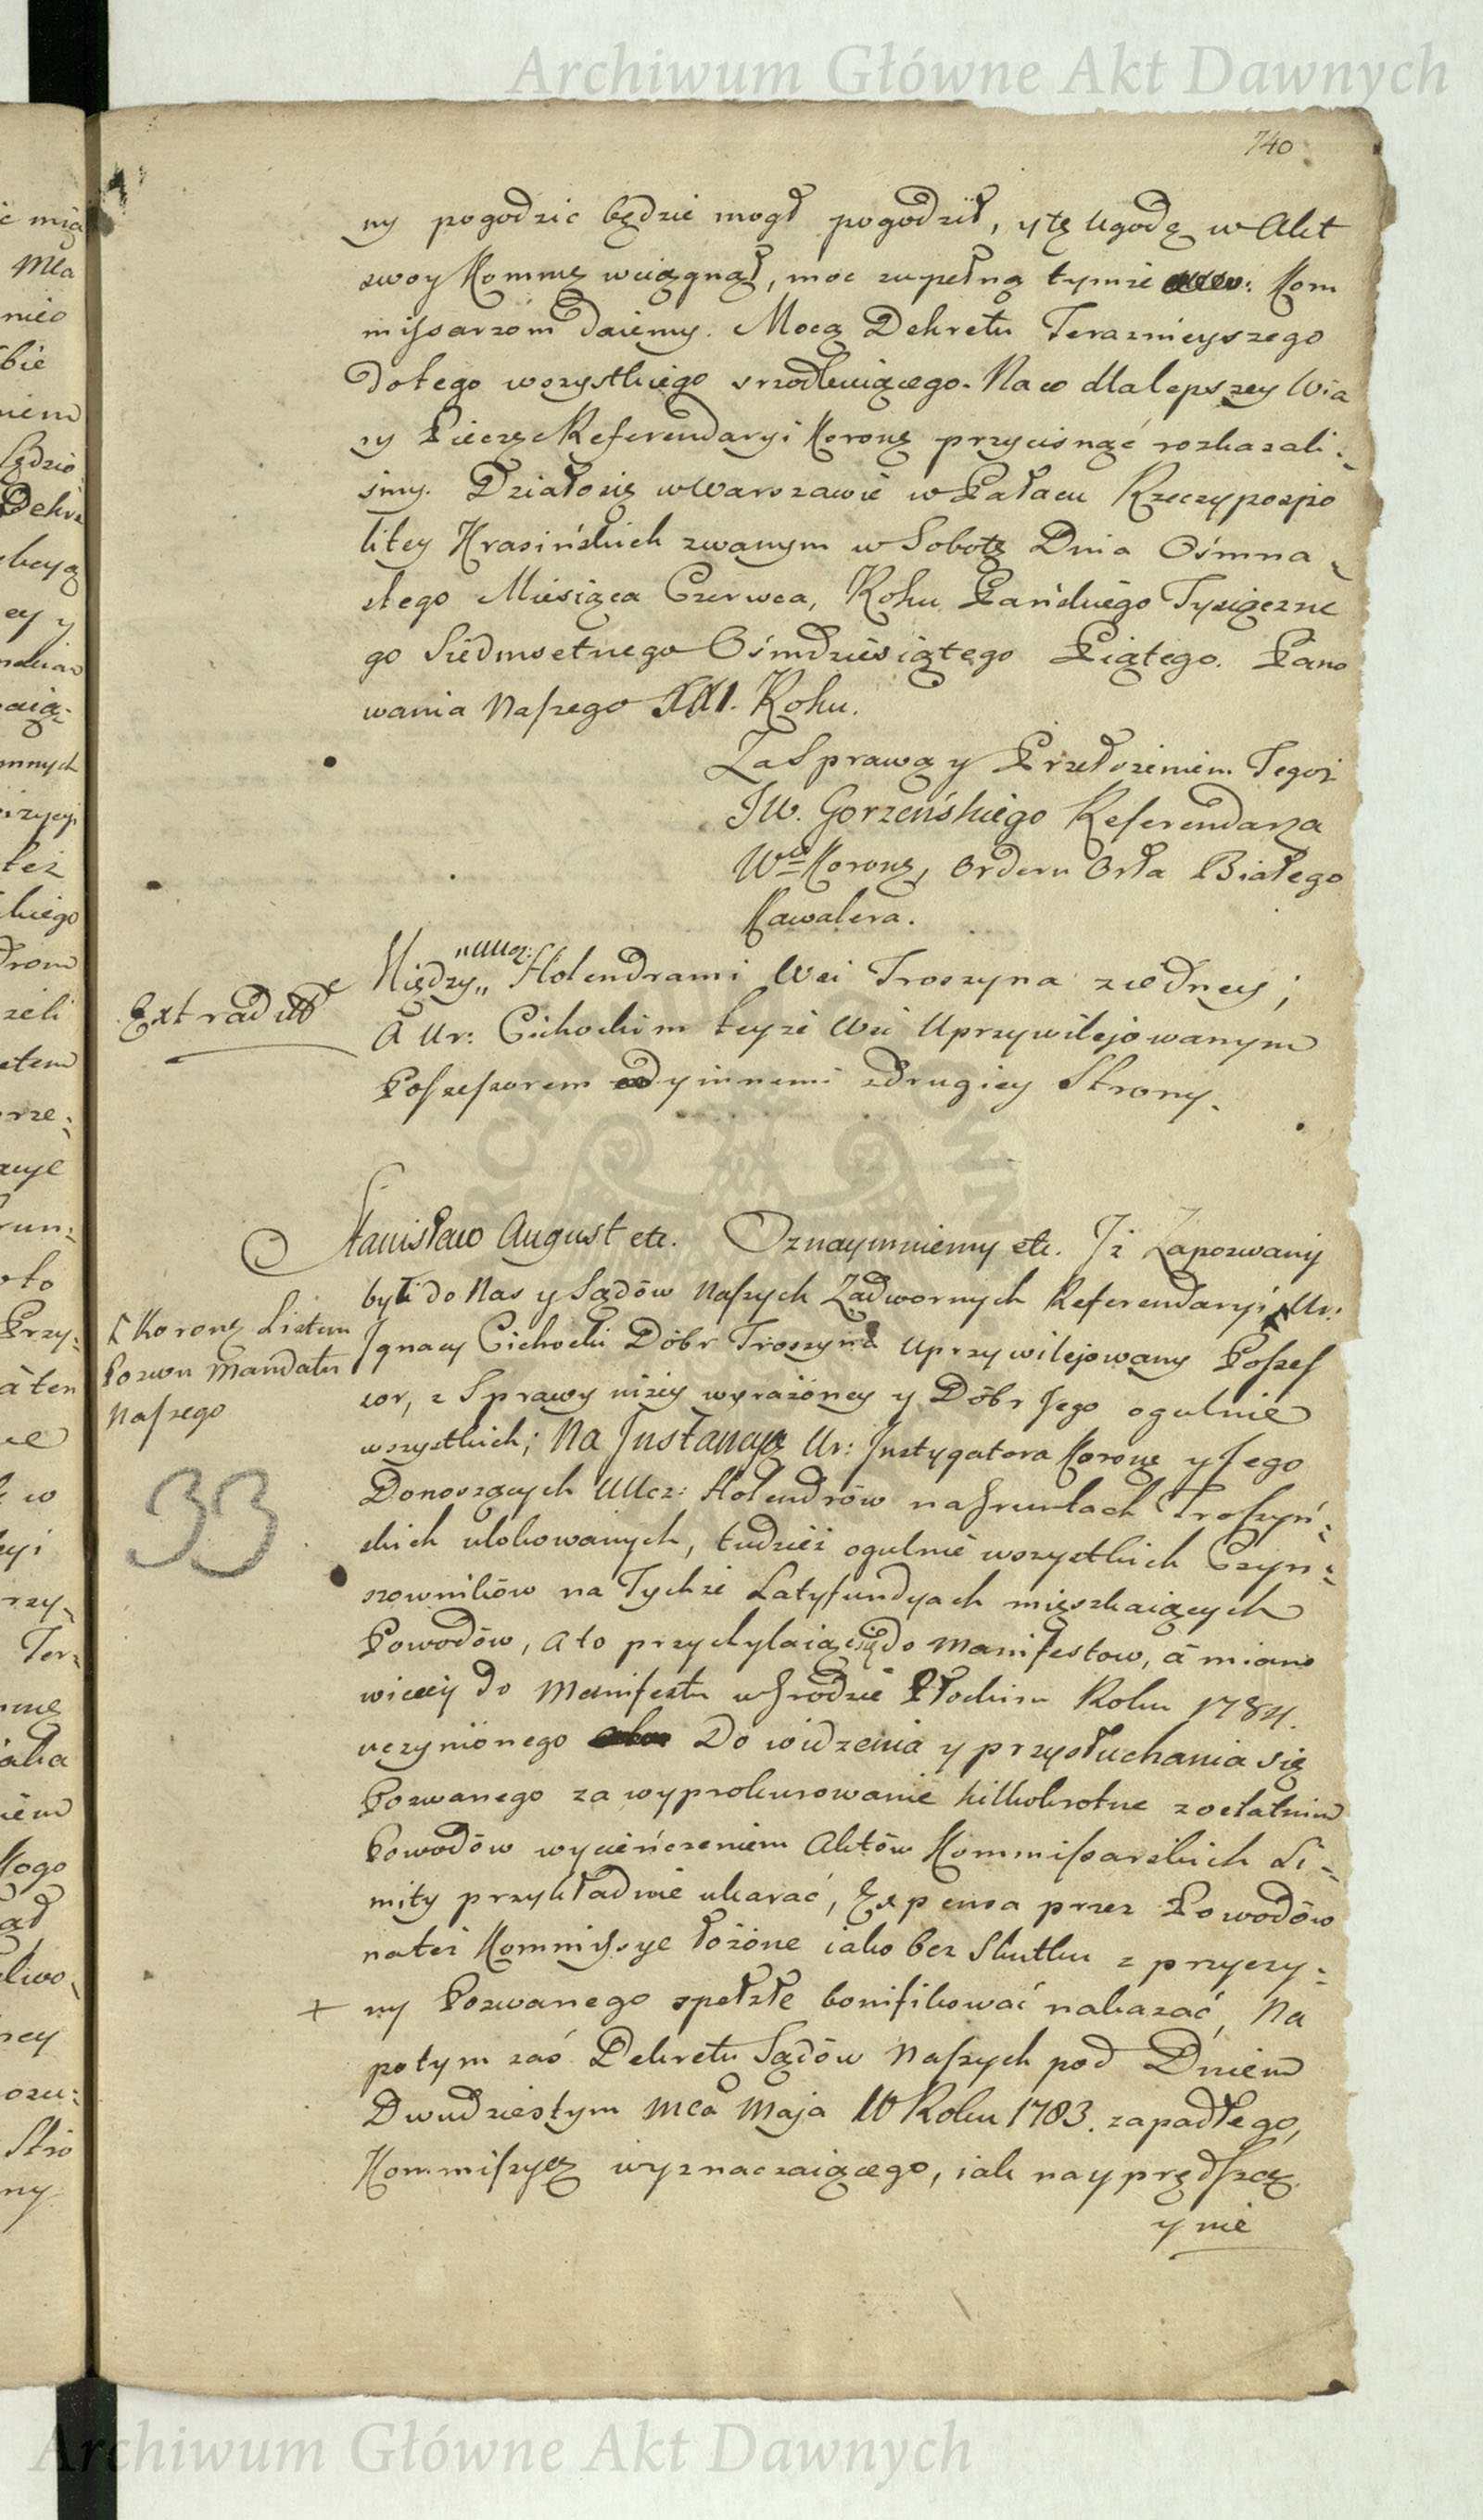 Archiwum Główne Akt Dawnych
740
ny pogodzic będzie mogł pogodził, y tę Ugodę w Akt
swoy Kommę wciągnął, moc zupełną tymże Kom
missarzom daiemy. Mocą Dekretu Teraznieyszego
do tego wszystkiego srzodkuiącego. Na co dla lepszey Wia
ry Pieczęc Referendaryi Koronę przycisnąć rozkazali:
smy. Działo się w Warszawie w Pałacu Rzeczypospo
litey Krasińskich zwanym w Sobotę Dnia Ośmna:
stego Miesiąca Czerwca, Roku Pańskiego Tysiączne
go Siedmsetnego Ośmdziesiątego Piątego. Pano
wania Naszego XXI. Roku.
Za Sprawą y Przełożeniem Tegoż
JW. Gorzeńskiego Referendarza
Wo Koronę, Orderu Orła Białego
Kawalera.
Extradit
Między „ UUcz: Holendrami Wsi Troszyna z iedney;
A Ur: Cichockim teyże Wsi Uprzywilejowanym
Possessorem y innemi z drugiey Strony.
Stanisław August etc. Oznaymuiemy etc. Iż Zapozwany
był do Nas y Sądów Naszych Zadwornych Referendaryi Ur:
Koronę Listem
Pozwu Mandatu
Naszego
Ignacy Cichocki Dóbr Troszyna Uprzywilejowany Possef
sor, z Sprawy niżey wyrażóney y Dóbr Jego ogulnie
wszystkich; Na Instancyą Ur: Instygatora Koronę y Jego
Donoszących UUcz: Holendrów na Gruntach Troszyń:
33
skich ulokowanych, tudzież ogulnie wszystkich Czyn:
szowników na Tychże Latyfundyach mięszkaiących
Powodów, a to przychylaiąc się do Manifestow, á miano
wicey do Manifestu w Grodzie Płockim Roku 1784.
uczynionego Do widzenia y przysłuchania się
Pozwanego za wyprokurowanie kilkokrotne z ostatnim
Powodów wycieńczeniem Aktów Kommissarskich Li:
mity przykładnie ukarać, Expensa przez Powodów
na też Kommissye łożóne iako bez Skutku z przyczy:
+ ny Pozwanego spełzłe bonifikować nakazać, Na
potym zaś Dekretu Sądów Naszych pod Dniem
Dwudziestym Mca Maja W Roku 1783. zapadłego,
Kommissyą wyznaczaiącego, iak nayprędszą
y nie
Archiwum Główne Akt Dawnych